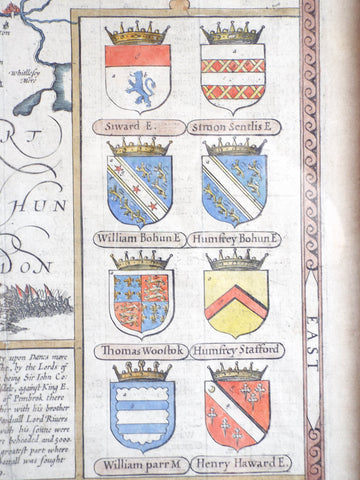 Whitlesey
Mere
RT
HUN
DON
Siward E.
Simon Sentlis E
William Bohun E
Humfrey Bohun E
Thomas Woostok
Humfrey Stafford
William parr M
Henry Haward E.
EAST
ty upon Danes more
, by the Lords of
being Sir Iohn Co:
dele, against King E.
of Pembrok there
her with his brother
Lord Rivers
with his sonne were
re beheaded and 5000.
greatest part where
was fought